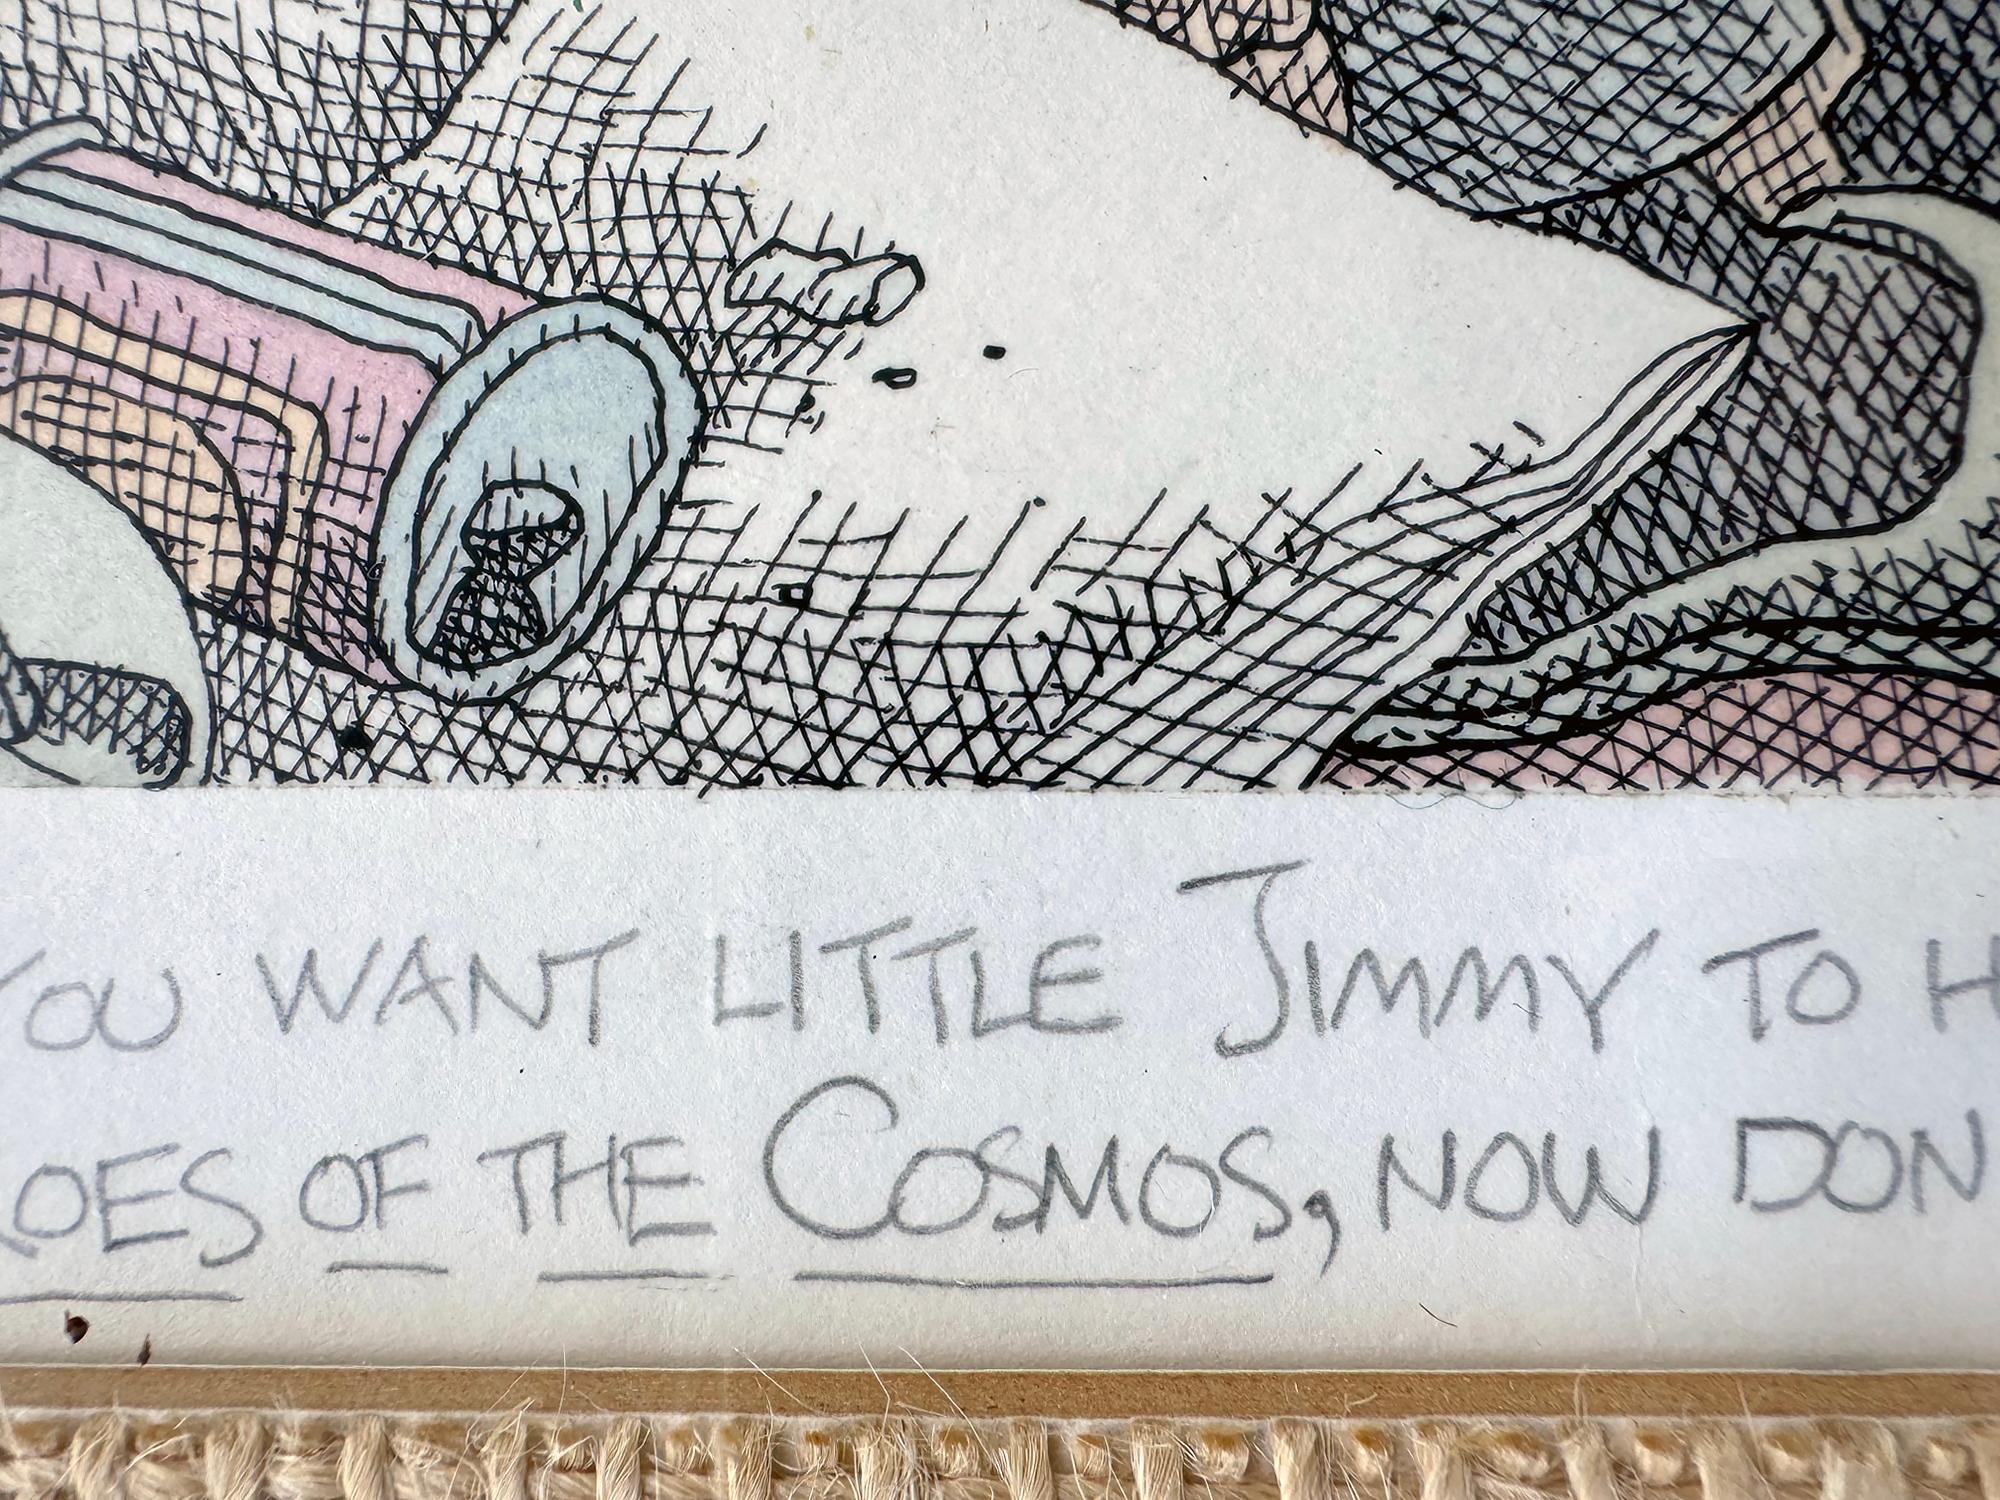 YOU WANT LITTLE JIMMY TO H
ROES OF THE COSMOS, NOW DON